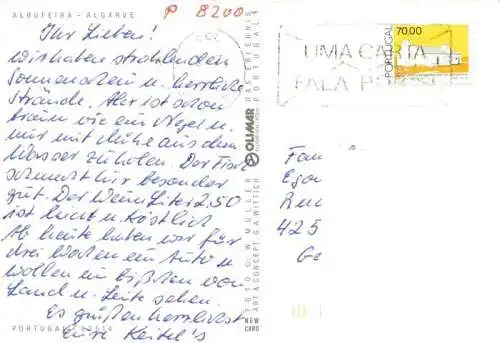 ALBUFEIRA - ALGARVE
P 8200
Ihr Lieben!
wir haben strahlenden
Sonnenschein u. herrliche
Strände. Alex ist schon
braun wie ein Negel u.
nur mit Mühe aus dem
Wasser zu holen. Der Fisch
schmeckt hier besonders
gut. Der Wein Liter 2.50
ist leicht u. köstlich
Ab heute haben wir für
drei Wochen ein Auto u.
wollen ein bißchen von
Land u. Leute sehen.
Es grüßen herzlichst
Eure Keitel's
PORTUGAL
OLIMAR
FOTO: G.W. MÜLLER
ART & CONCEPT G.A. WITTICH
NEW
CARD
70.00
PORTUGAL
UMA CARTA
FALA
Fam
Egon
425
Ge